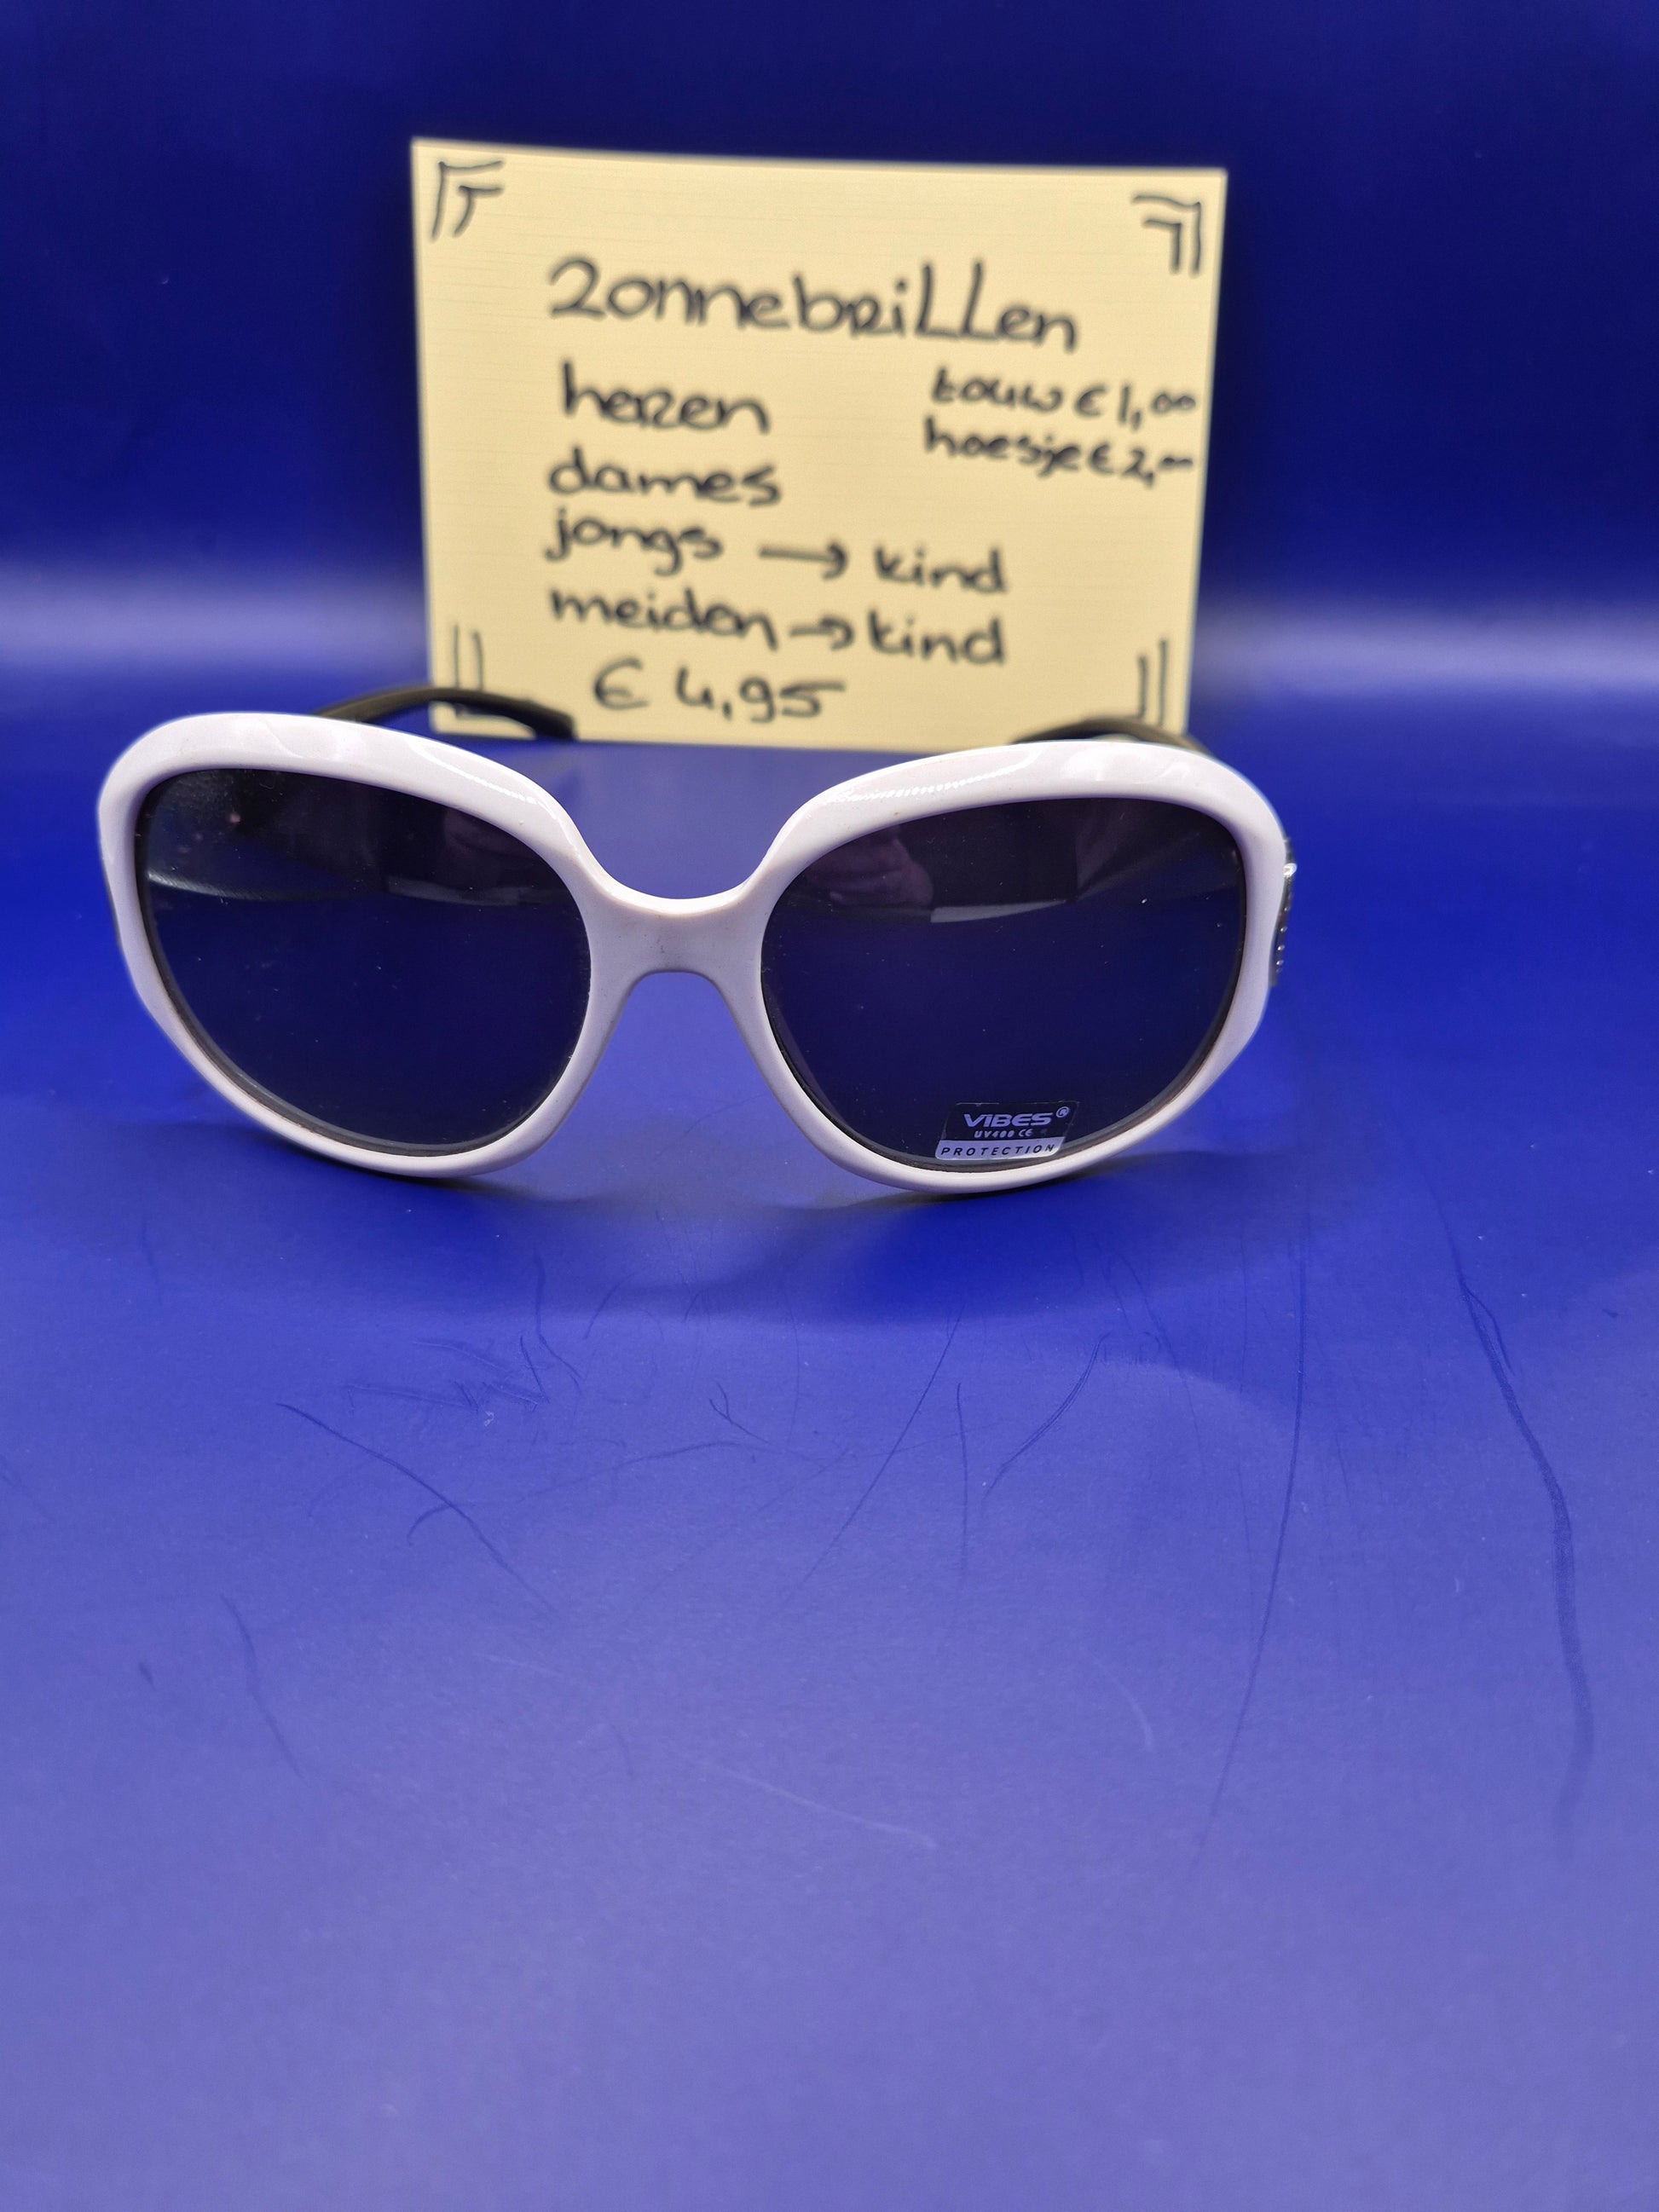 Zonnebrillen
heren
touw € 1,00
hoesje € 2,00
dames
jongs → kind
meiden → kind
€ 4,95
VIBES®
UV400 CE
PROTECTION